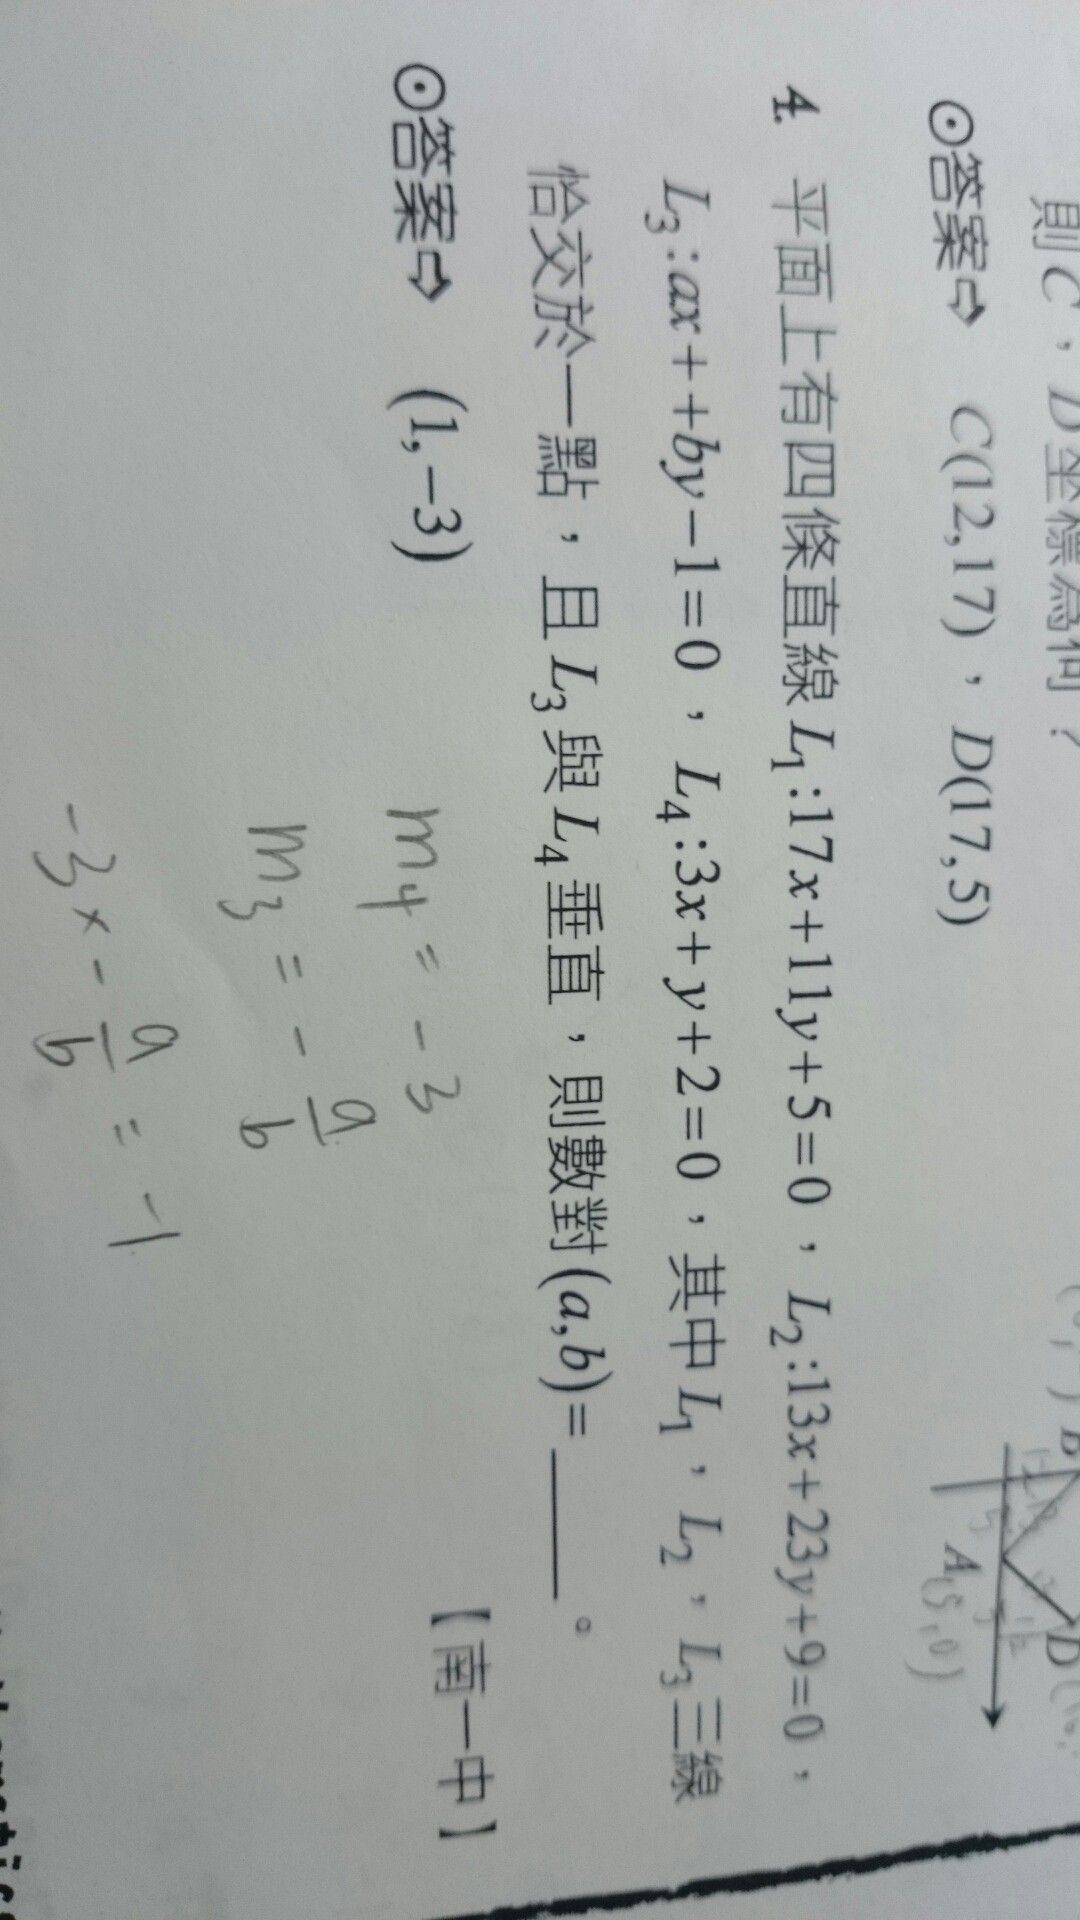 則C，D坐標為何？
⊙答案⇨ C(12,17)，D(17,5)
A(5,0)
4. 平面上有四條直線L₁:17x+11y+5=0，L₂:13x+23y+9=0，
L₃:ax++by-1=0，L₄:3x+y+2=0，其中L₁，L₂，L₃三線
恰交於一點，且L₃與L₄垂直，則數對(a,b)=______。
【南一中】
⊙答案⇨ (1,-3)
m₄ = -3
m₃ = -a/b
-3 × -a/b = -1